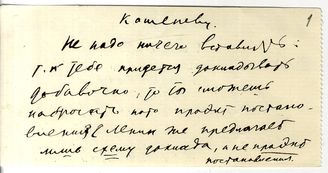 Каменеву.
1
Не надо ничего вставлять:
т.к. тебе придется докладывать
добавочно, то ты сможешь
набросать потом проект постано-
вления. Ленин же предлагает
лишь схему доклада, а не проект
постановления.